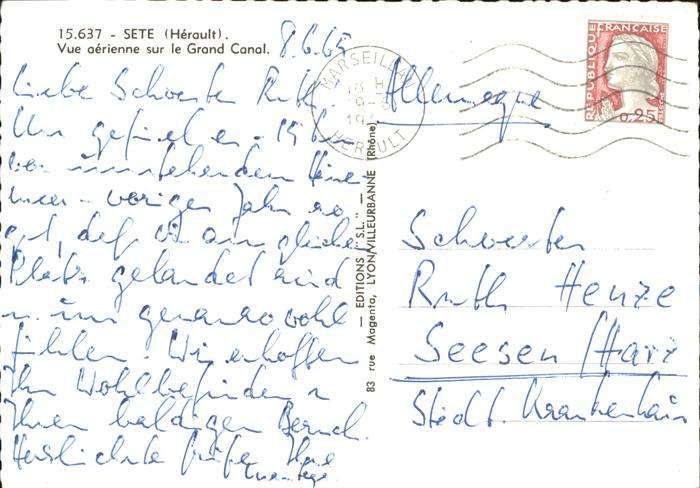 15.637 - SETE (Hérault).
Vue aérienne sur le Grand Canal.
8.6.65
Liebe Schwester Ruth.
Uns gefiel es 15 km
von umstehendem
voriges Jahr so
gut, daß wir am gleichen
Platz gelandet sind
u. uns genauso wohl
fühlen. Wir erhoffen
Ihr Wohlbefinden u
Ihren baldigen Besuch.
Herzlichste Grüße Ihre
— EDITIONS "S.L." —
83 rue Magenta, LYON-VILLEURBANNE (Rhône)
MARSEILLAN
HERAULT
REPUBLIQUE FRANÇAISE
0,25
Allemagne
Schwester
Ruth Henze
Seesen/Harz
Städt. Krankenhaus